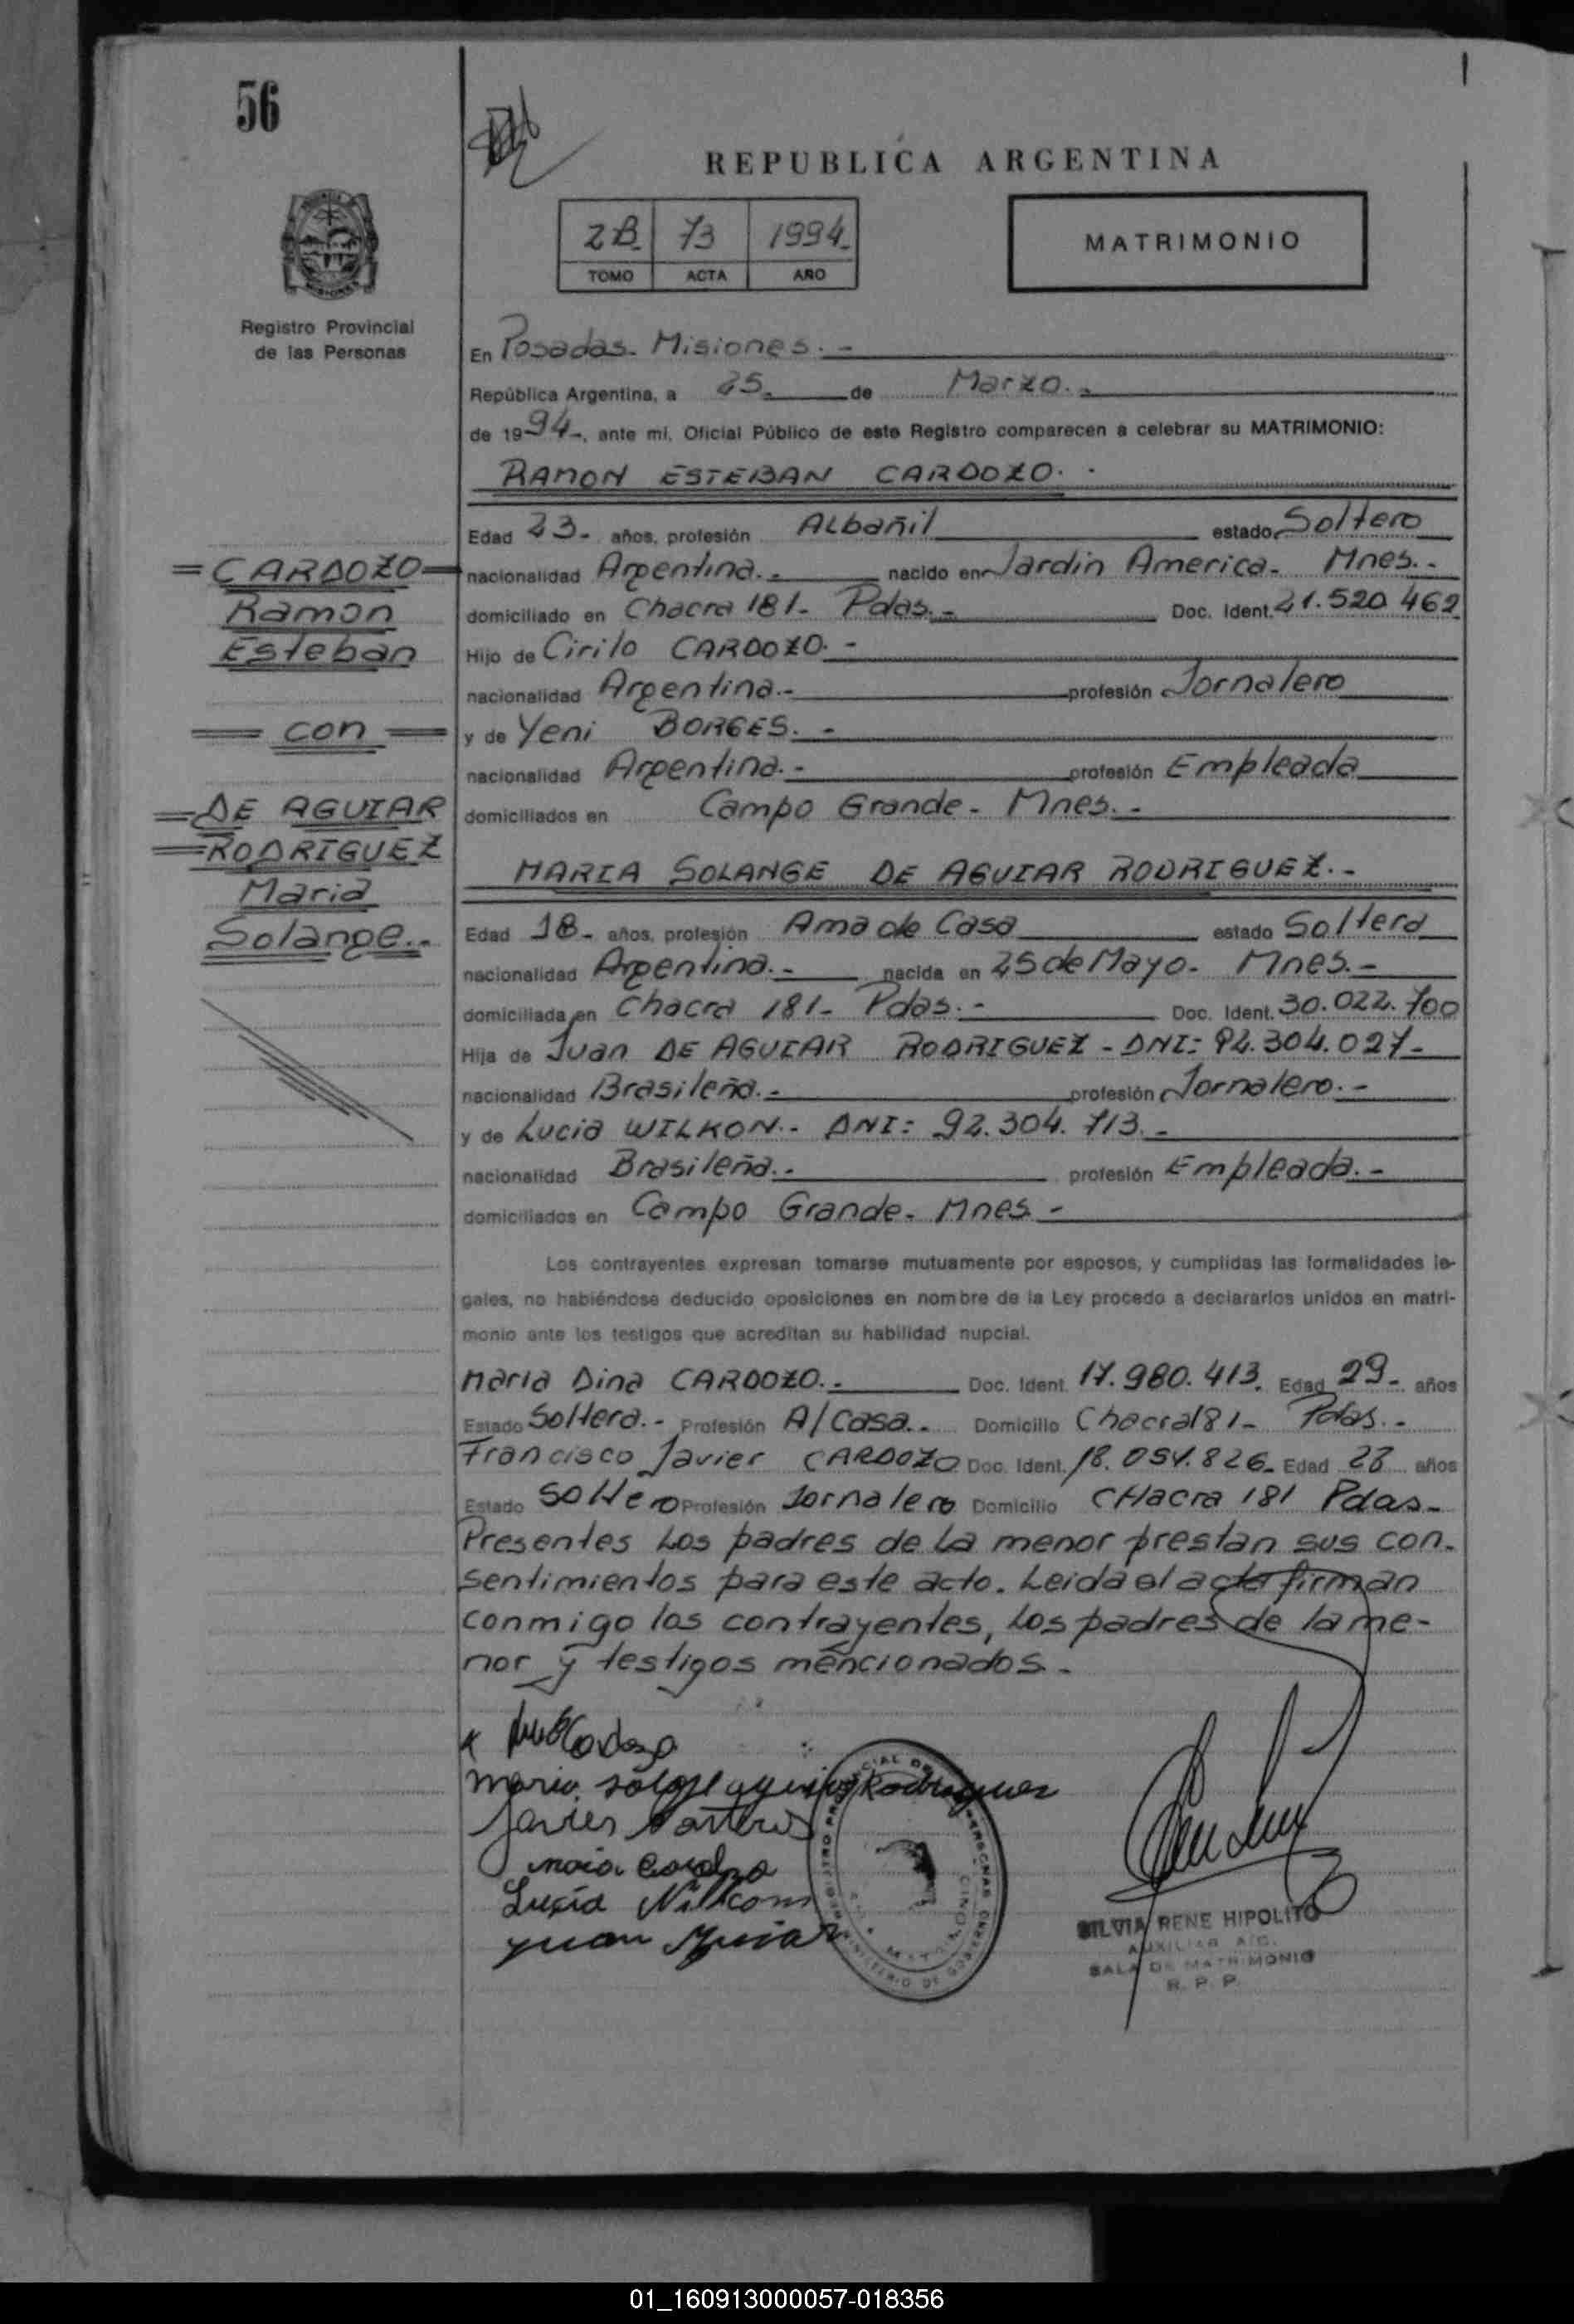 56
REPUBLICA ARGENTINA
2B 73 1994
TOMO ACTA AÑO
MATRIMONIO
Registro Provincial
de las Personas
En Posadas. Misiones. -
República Argentina, a 25. de Marzo. -
de 1994-, ante mí, Oficial Público de este Registro comparecen a celebrar su MATRIMONIO:
RAMON ESTEBAN CARDOZO. -
Edad 23- años, profesión Albañil estado Soltero
nacionalidad Argentina.- nacido en Jardin America- Mnes.-
domiciliado en Chacra 181- Pdas.- Doc. Ident. 21.520.462
Hijo de Cirilo CARDOZO. -
nacionalidad Argentina.- profesión Jornalero
y de Yeni BORGES. -
nacionalidad Argentina.- profesión Empleada
domiciliados en Campo Grande- Mnes.-
=CARDOZO=
Ramon
Esteban
= con =
=DE AGUIAR
=RODRIGUEZ
Maria
Solange.-
MARIA SOLANGE DE AGUIAR RODRIGUEZ.-
Edad 18- años, profesión Ama de Casa estado Soltera
nacionalidad Argentina.- nacida en 25 de Mayo- Mnes.-
domiciliada en Chacra 181- Pdas.- Doc. Ident. 30.022.700
Hija de Juan DE AGUIAR RODRIGUEZ - DNI: 92.304.027-
nacionalidad Brasileña.- profesión Jornalero.-
y de Lucia WILKON.- DNI: 92.304.713.-
nacionalidad Brasileña.- profesión Empleada.-
domiciliados en Campo Grande- Mnes-
Los contrayentes expresan tomarse mutuamente por esposos, y cumplidas las formalidades le-
gales, no habiéndose deducido oposiciones en nombre de la Ley procedo a declararlos unidos en matri-
monio ante los testigos que acreditan su habilidad nupcial.
Maria Dina CARDOZO.- Doc. Ident. 17.980.413. Edad 29- años
Estado Soltera.- Profesión A/Casa.. Domicilio Chacra 181- Pdas.-
Francisco Javier CARDOZO Doc. Ident. 18.054.826- Edad 28 años
Estado Soltero Profesión Jornalero Domicilio CHacra 181 Pdas-
Presentes Los padres de La menor prestan sus con-
sentimientos para este acto. Leida el acta firman
conmigo los contrayentes, Los padres de la me-
nor y testigos mencionados.-
Cardozo
Rodriguez
Javier
Lucia
Juan
SILVIA RENE HIPOLITO
AUXILIAR A/C.
SALA DE MATRIMONIO
R. P. P.
01_160913000057-018356